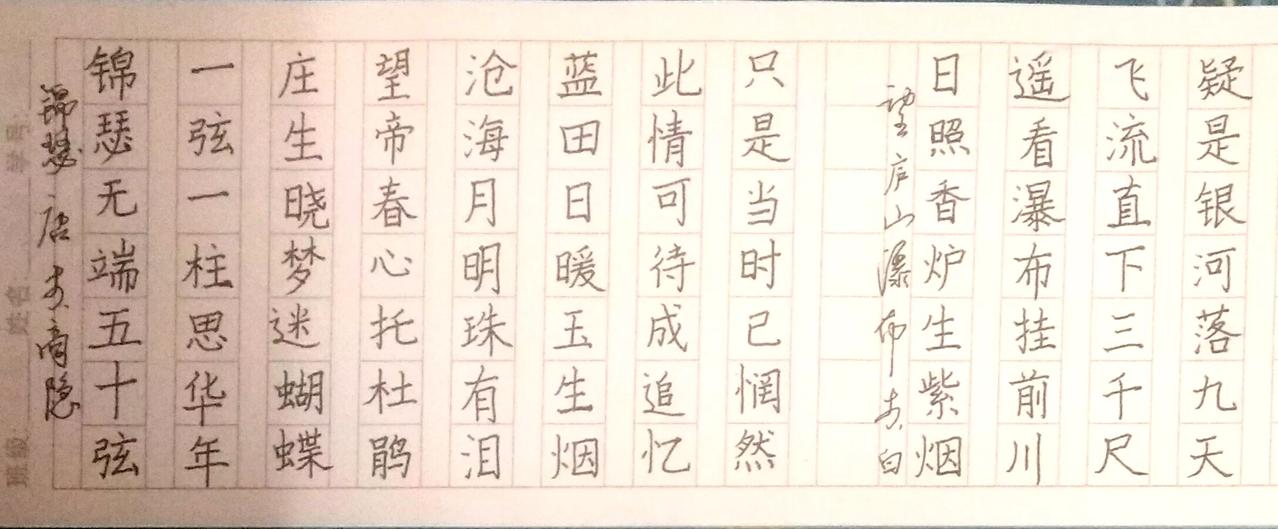 锦瑟 唐 李商隐
锦瑟无端五十弦
一弦一柱思华年
庄生晓梦迷蝴蝶
望帝春心托杜鹃
沧海月明珠有泪
蓝田日暖玉生烟
此情可待成追忆
只是当时已惘然
望庐山瀑布 李白
日照香炉生紫烟
遥看瀑布挂前川
飞流直下三千尺
疑是银河落九天
学号:
姓名:
班级: